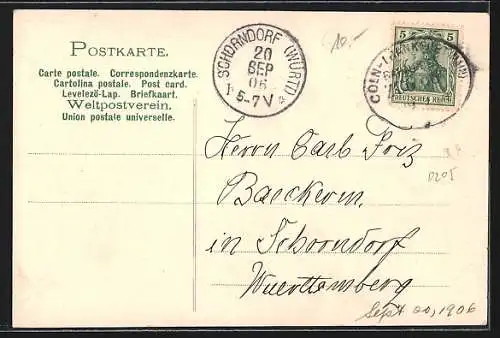 POSTKARTE.
Carte postale. Correspondenzkarte.
Cartolina postale. Post card.
Levelező-Lap. Briefkaart.
Weltpostverein.
Union postale universelle.
SCHORNDORF (WÜRTT)
20
SEP
06
5-7 V
10.-
5 5
DEUTSCHES REICH
Herrn Carl
Baeckerm.
in Schorndorf
Wuerttemberg
0205
Sept 20, 1906